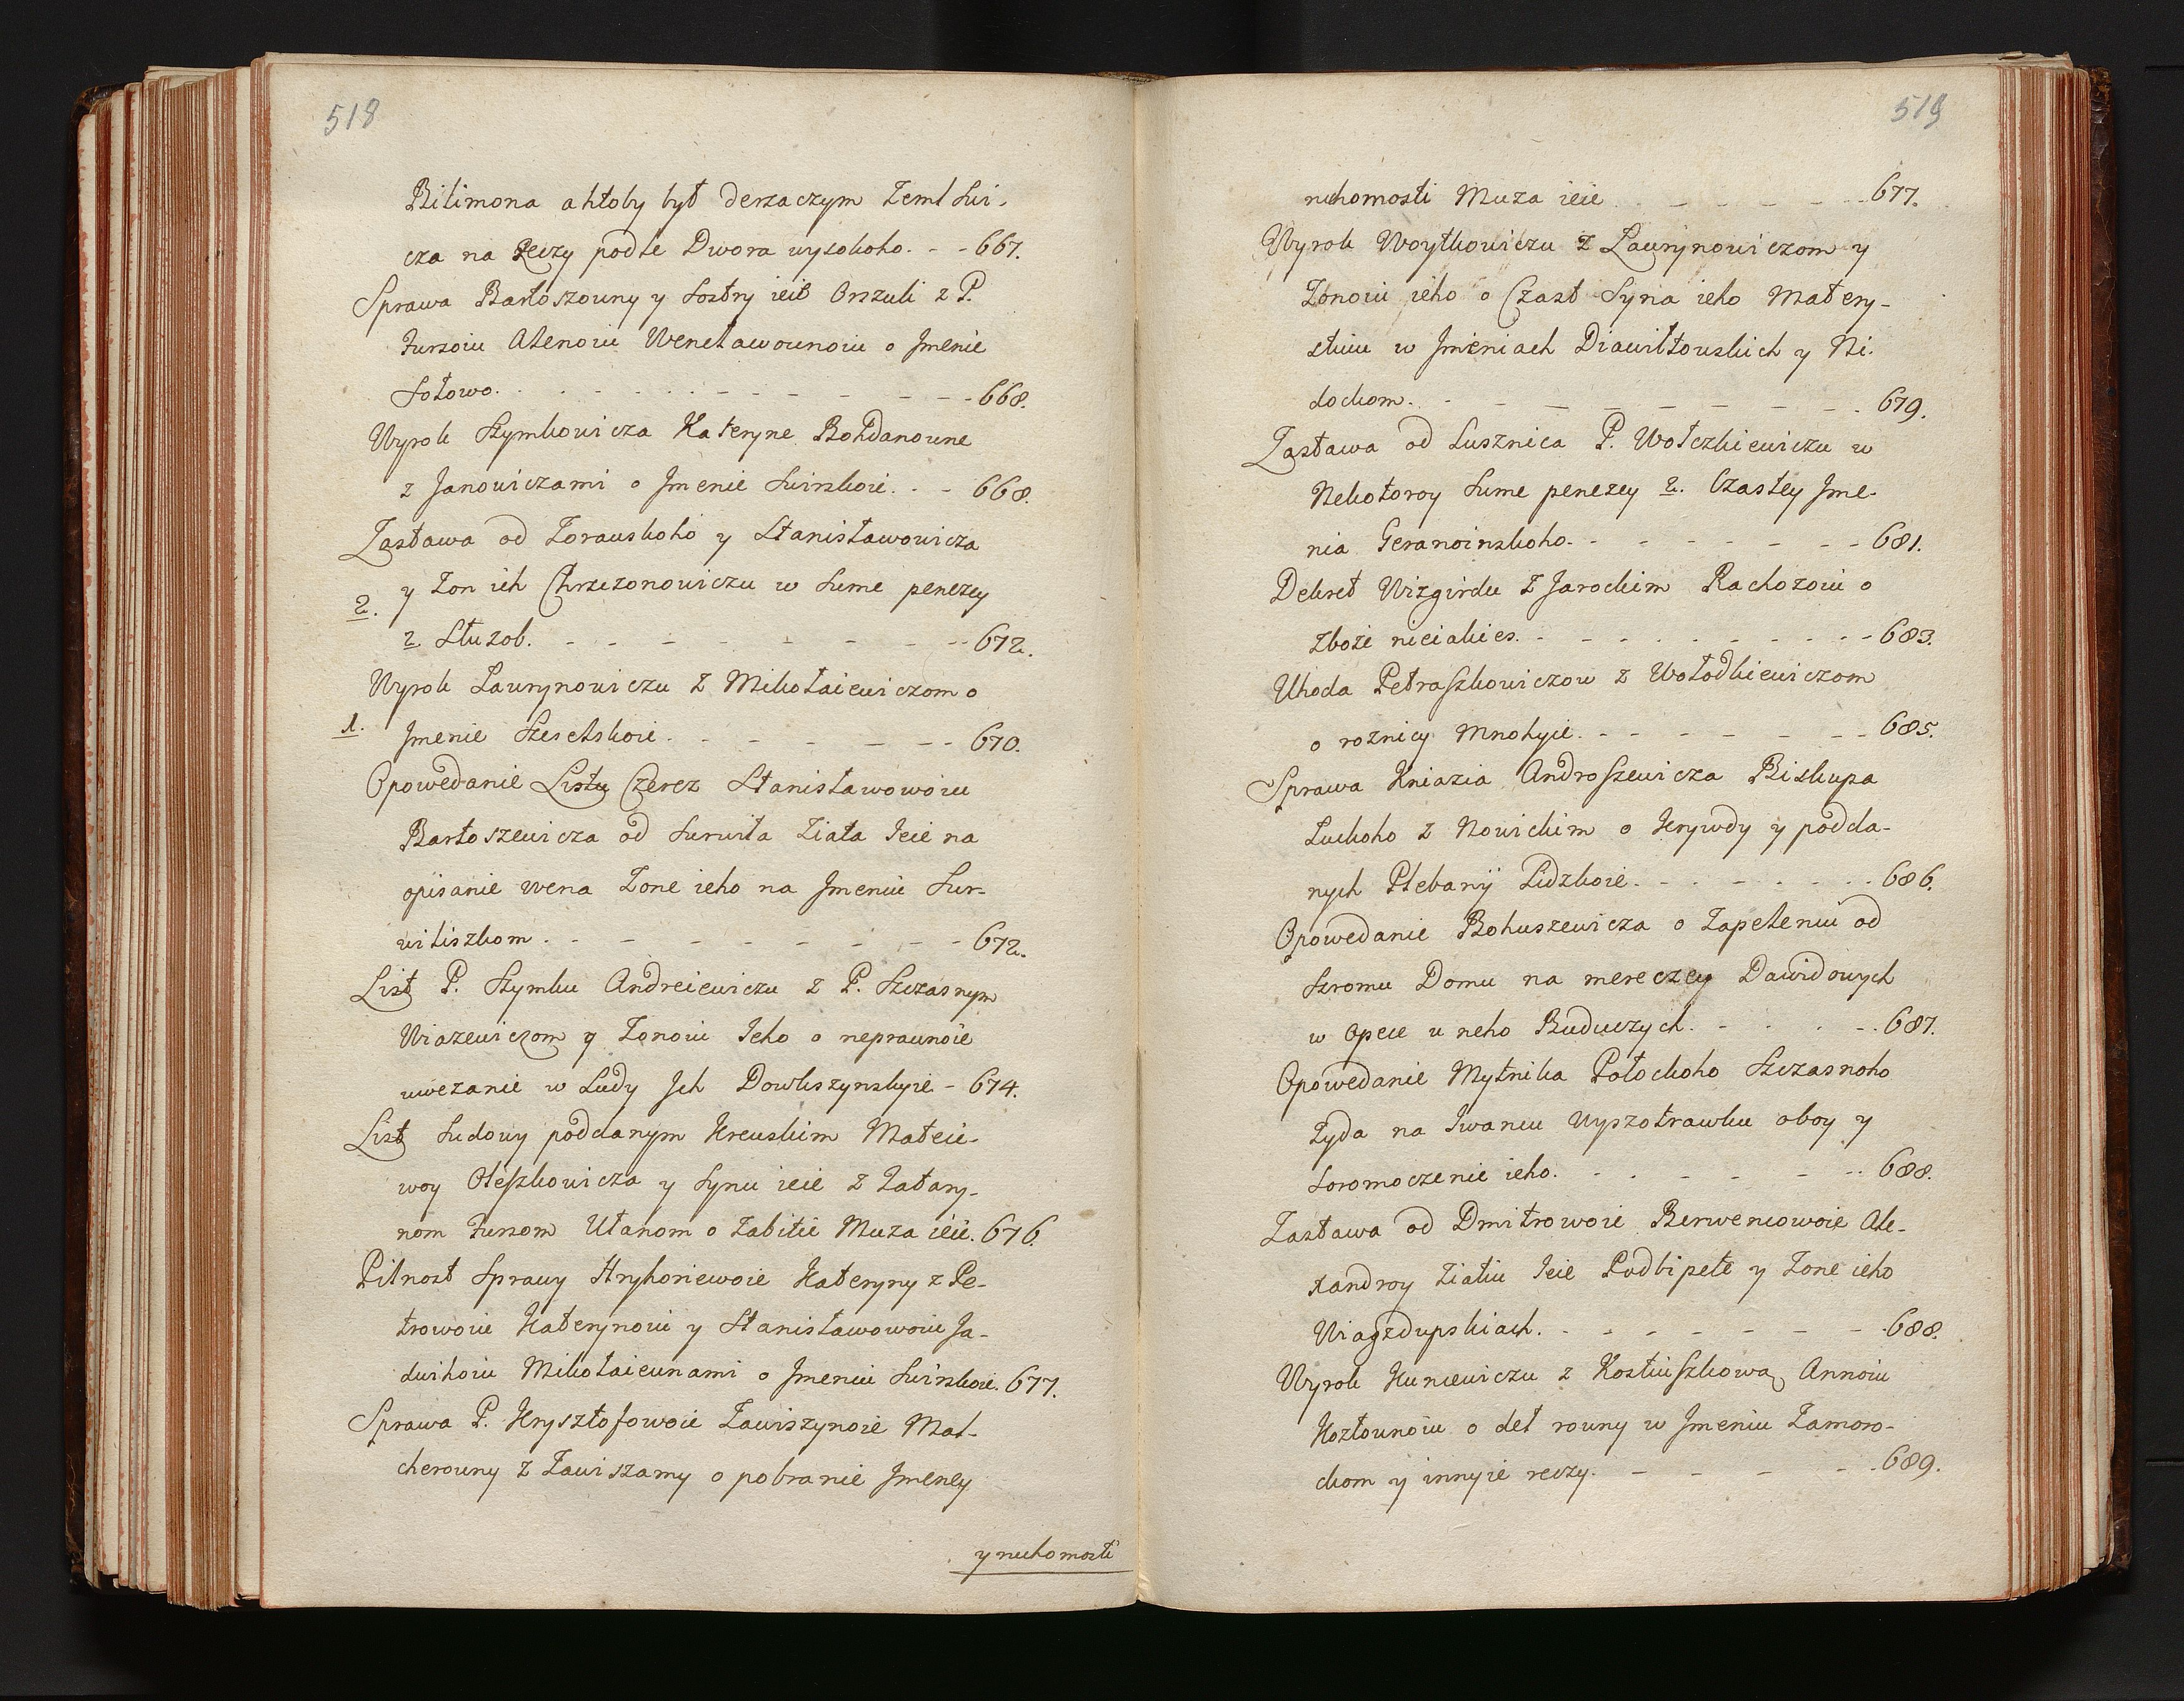 518
Bilimona a htoby był derzaczym Zeml Swi-
cza na Reczy podle Dwora wysokoho. - - 667.
Sprawa Bartoszowny y Sostry ieie Orszuli z P.
Jurzoiu Alenoiu Wencławounoiu o Jmenie
Sołowo. - - - - - - - - 668.
Wyrok Szymkowicza Kateryne Bohdanowne
z Janowiczami o Jmenie Swirskoie. - - 668.
Zastawa od Zorauskoho y Stanisławowicza
y Zon ich Chrzczonowiczu w Sume penezey
2.
2. Służob. - - - - - - - 672.
Wyrok Laurynowiczu z Mikołaiewiczom o
1.
Jmenie Szesclskoie. - - - - - - 670.
Opowedanie Listu Czerez Stanisławowoiu
Bartoszewicza od Surwiła Ziatia Ieie na
opisanie wena Zone ieho na Jmeniu Sur-
wiliszkom. - - - - - - - - 672.
List P. Szymku Andreiewiczu z P. Szczasnym
Wiazewiczom y Zonoiu Ieho o neprawnoie
uwezanie w Ludy Ich Dowkszynskyie - 674.
List Sudowy poddanym Krewskim Mateie-
woy Oleszkowicza y Synu ieie z Tatary-
nom Jurzom Ułanom o Zabitie Muza ieie. 676.
Pilnost Sprawy Hryhoriewoie Kateryny z Pe-
trowoiu Katerynoiu y Stanisławowoiu Ja-
dwihoiu Mikołaiewnami o Jmeniu Swirskoie. 677.
Sprawa P. Krysztofowoie Zawiszynoie Mal-
cherowny z Zawiszamy o pobranie Jmeney
y ruchomosti
519
ruchomosti Muza ieie. - - - - - 677.
Wyrok Woytkowiczu z Laurynowiczom y
Zonoiu ieho o Czast Syna ieho Matery-
stuiu w Jmeniach Diawiltowskich y Ni-
dockom. - - - - - - - - 679.
Zastawa od Susznica P. Wołczkiewiczu w
Nekotoroy Sume penezey 2. Czastey Jme-
nia Geranoinskoho. - - - - - - 681.
Dekret Wizgirdu z Jarockim Rachozoiu o
zboże nieiakies. - - - - - - - 683.
Uhoda Petraszkowiczow z Wołodkiewiczom
o roznicy Mnohyie. - - - - - - 685.
Sprawa Kniazia Androszewicza Biskupa
Luckoho z Nowickim o Krywdy y podda-
nych Plebanij Lidzkoie. - - - - - 686.
Opowedanie Bohuszewicza o Zapeleniu od
Szromu Domu na mereczey Dawidowych
w Opece u neho Buduczych. - - - - 687.
Opowedanie Mytnika Połockoho Szczasnoho
Żyda na Iwanu Wyszotrawku oboy y
Soromoczenie ieho. - - - - - - 688.
Zastawa od Dmitrowoie Berwenowoie Ale-
xandroy Ziatiu Ieie Podbipete y Zone ieho
Wiagzdupskiach. - - - - - - - 688.
Wyrok Kuncewiczu z Kostiuszkową Annoiu
Kozłounoiu o deł rouny w Jmeniu Zamoro-
ckom y innyie reczy. - - - - - - 689.